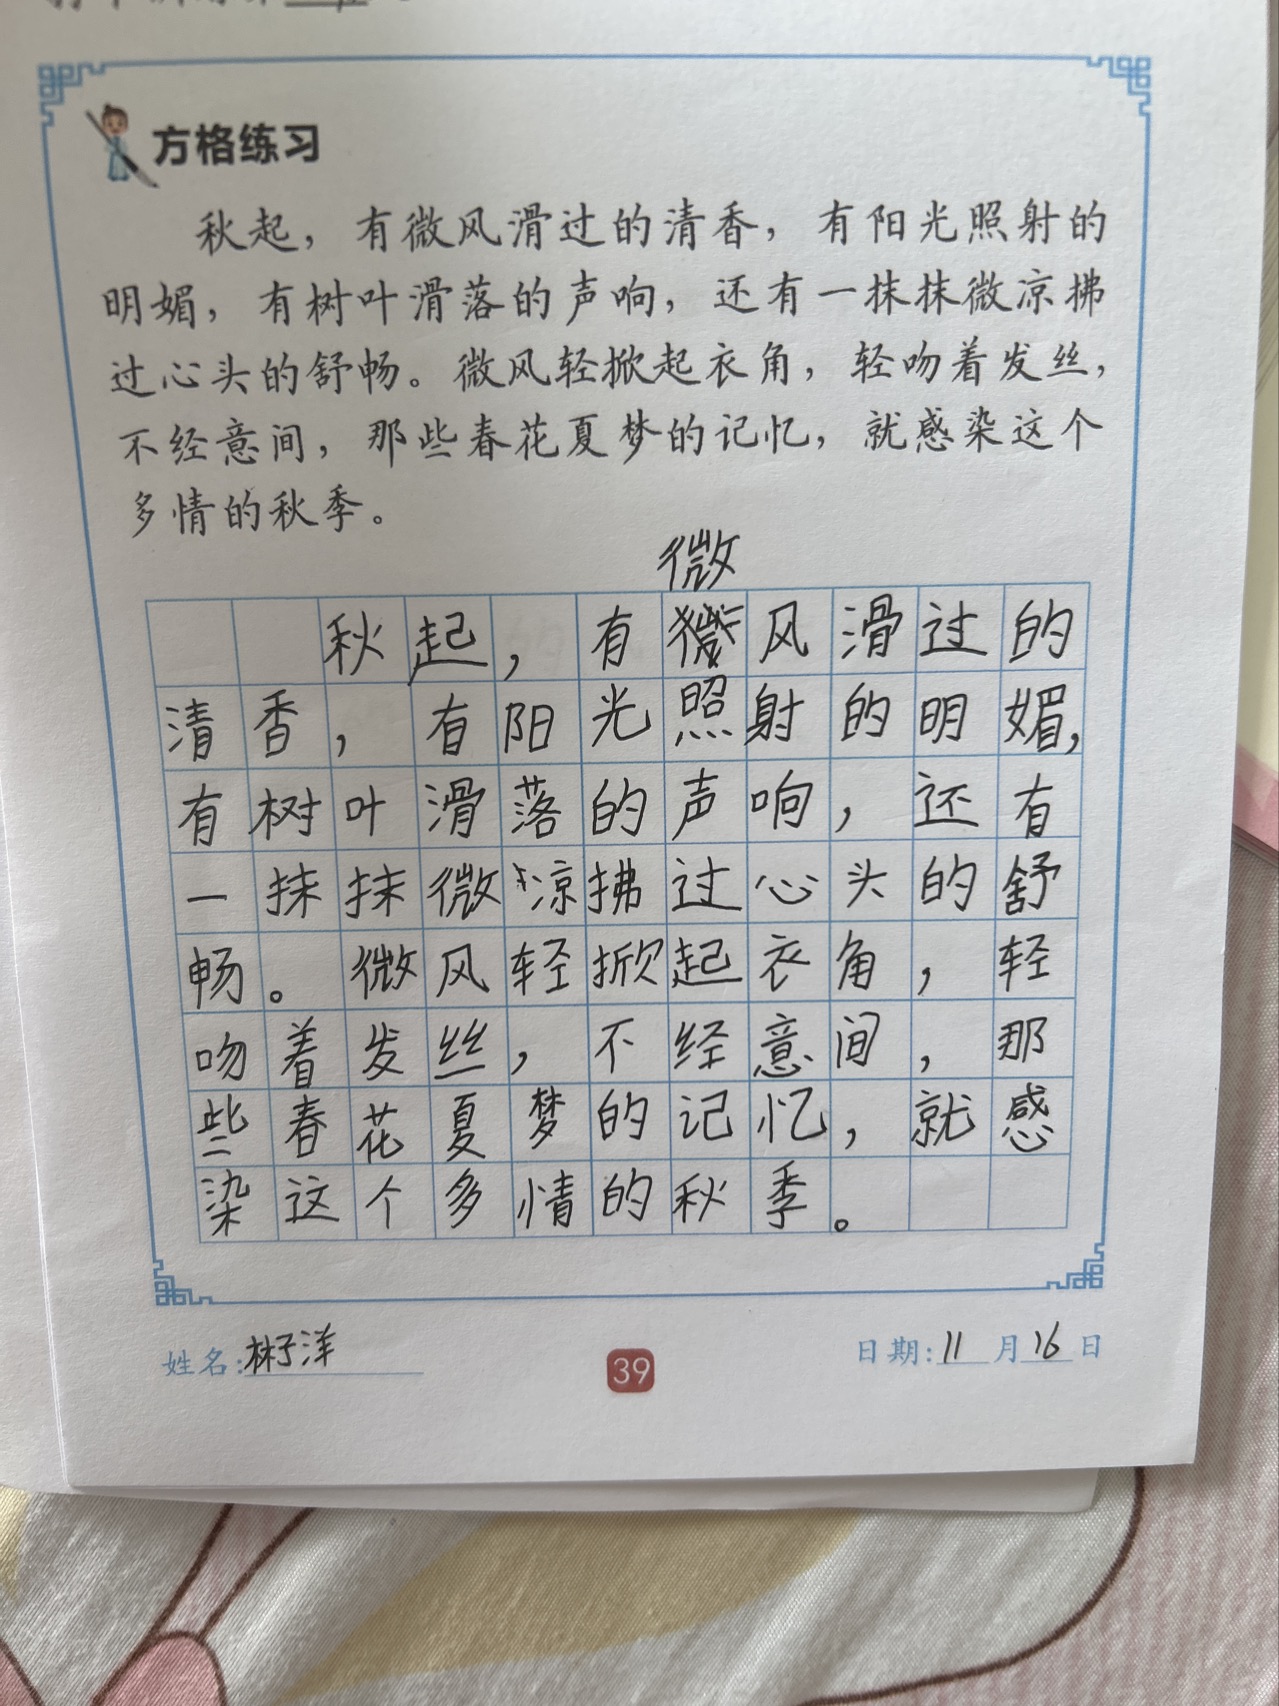 方格练习
秋起，有微风滑过的清香，有阳光照射的
明媚，有树叶滑落的声响，还有一抹抹微凉拂
过心头的舒畅。微风轻掀起衣角，轻吻着发丝，
不经意间，那些春花夏梦的记忆，就感染这个
多情的秋季。
微
秋起，有风滑过的
清香，有阳光照射的明媚，
有树叶滑落的声响，还有
一抹抹微凉拂过心头的舒
畅。微风轻掀起衣角，轻
吻着发丝，不经意间，那
些春花夏梦的记忆，就感
染这个多情的秋季。
姓名：林子洋
39
日期：11月16日